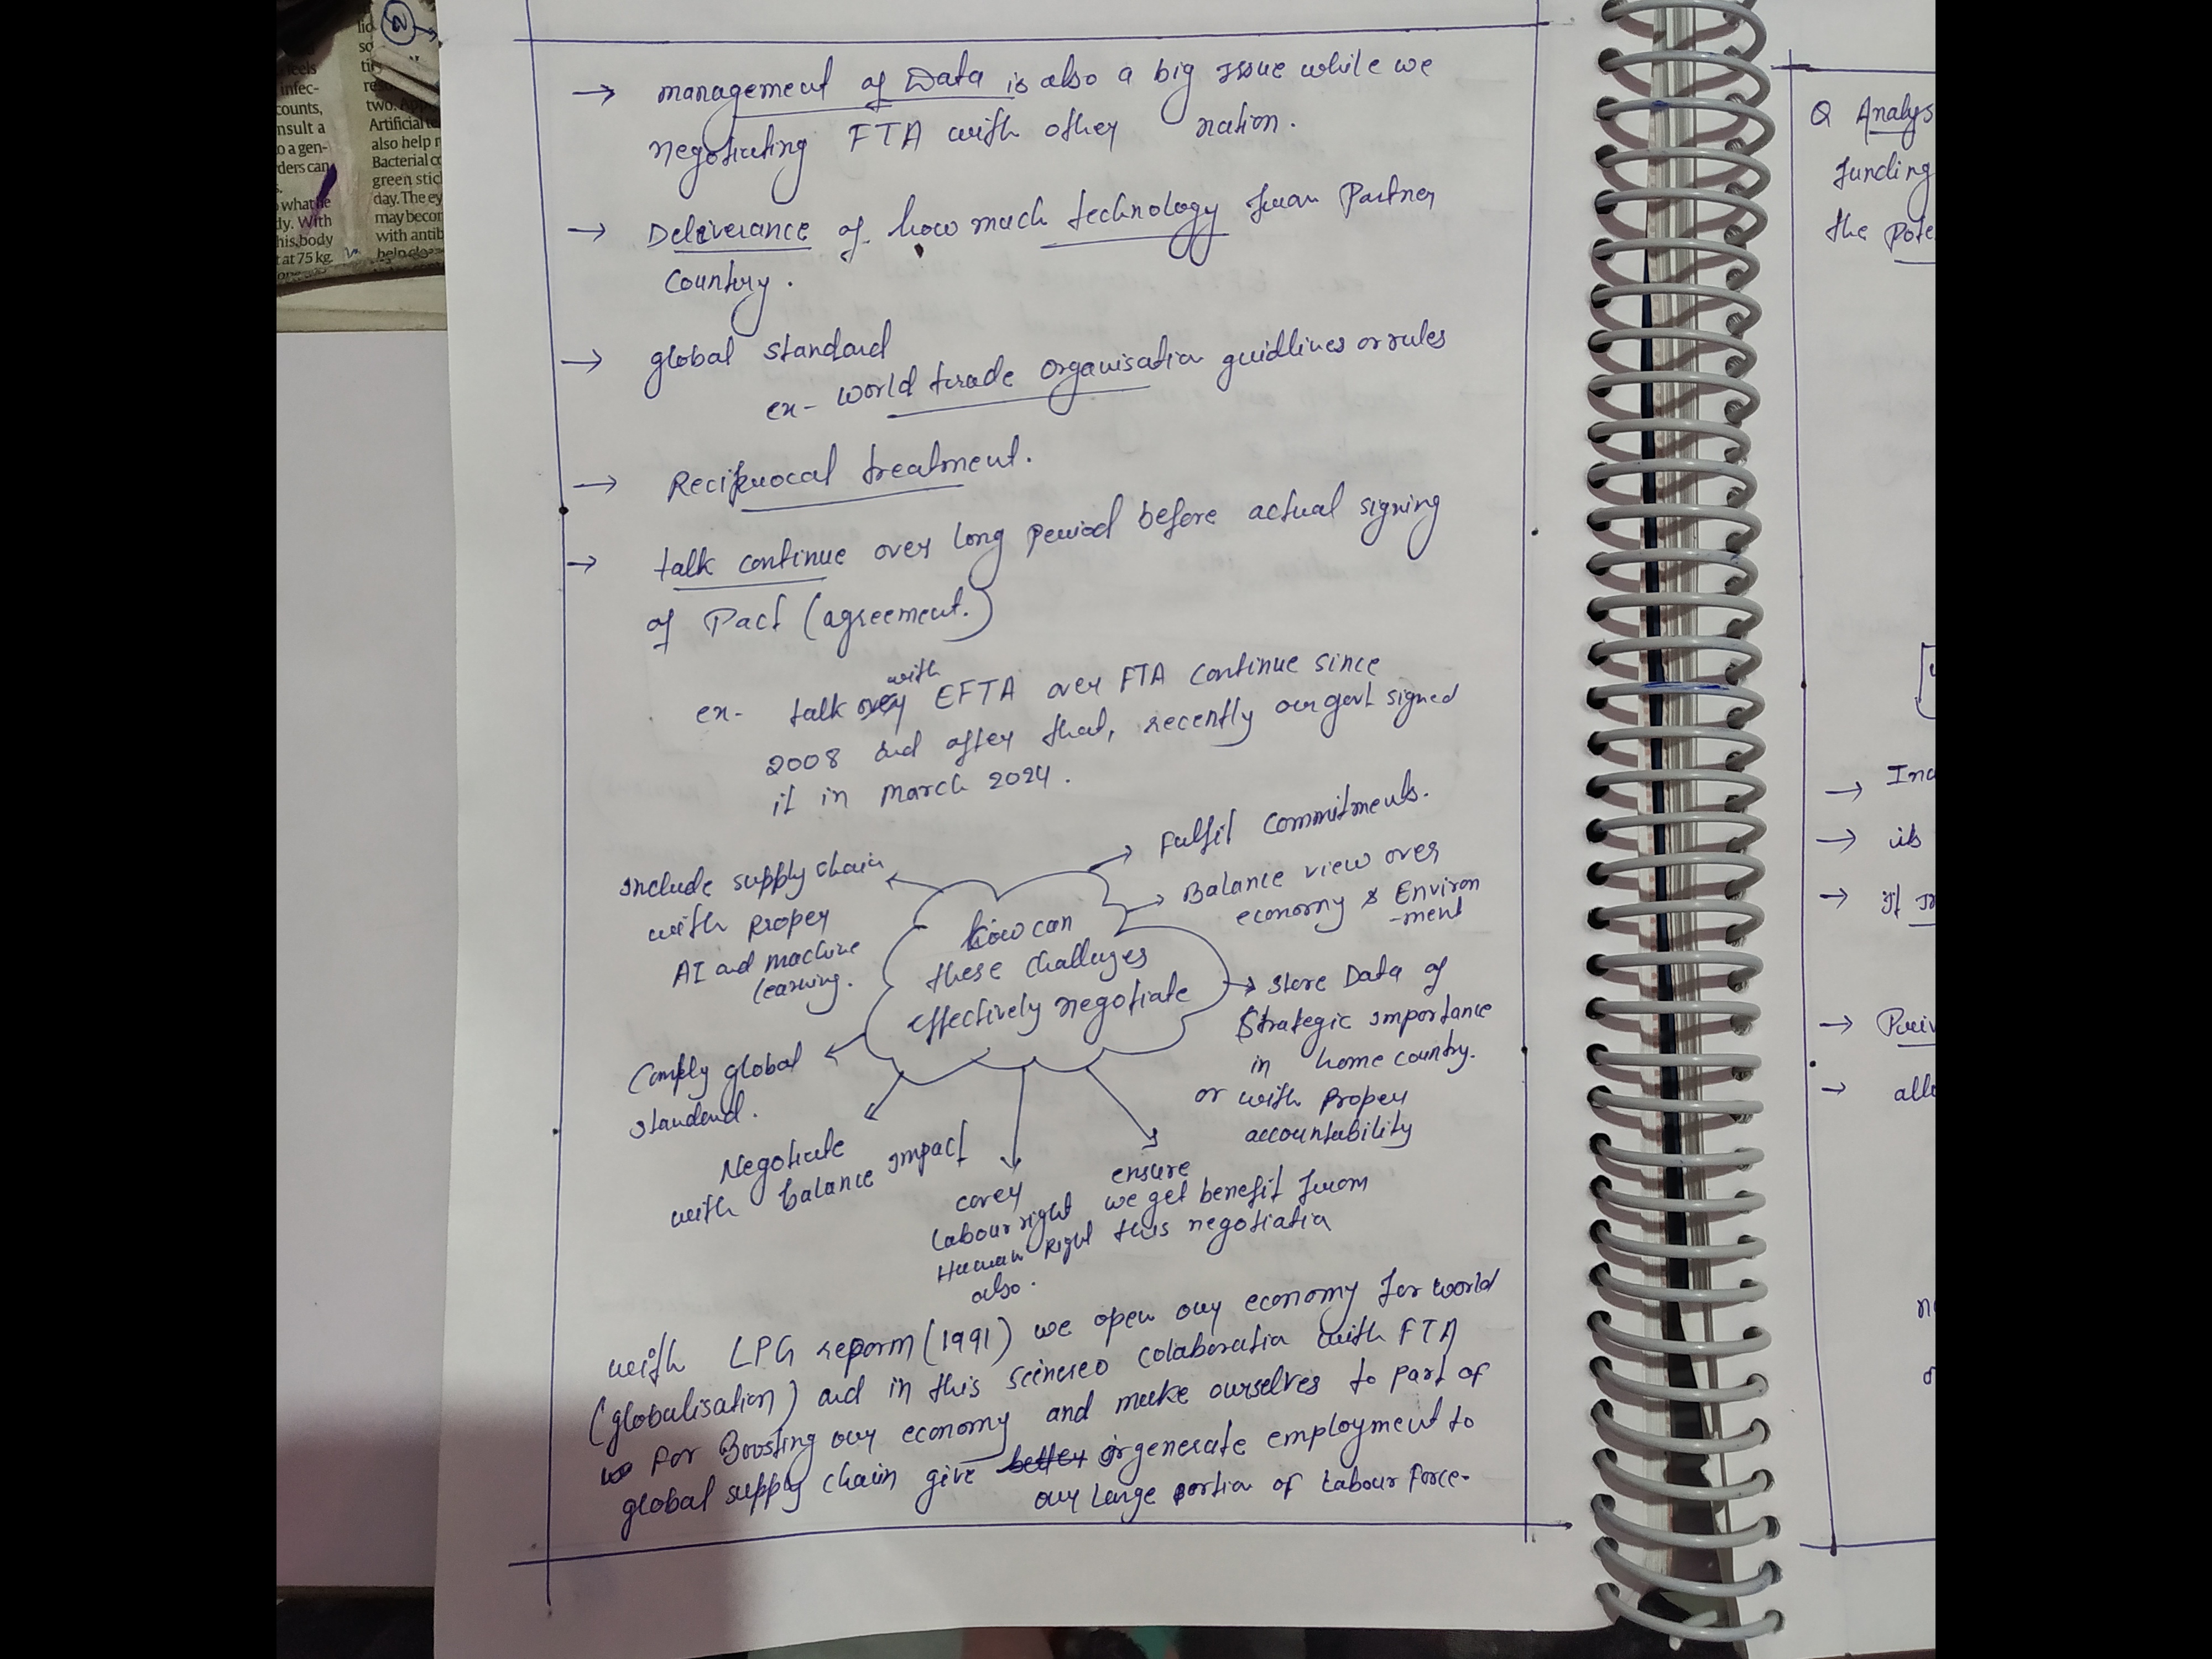 lio
so
tis
infec-
counts,
nsult a
o a gen-
ders can
s.
what he
dy. With
his body
at 75 kg.
two.
Artificial
also help
Bacterial
green stic
day. The ey
may becom
with antib
→ management of Data is also a big issue while we
negotiating FTA with other nation.
→ Deliverance of how much technology from Partner
Country.
→ global standard
ex- world trade organisation guidlines or rules
→ Reciprocal treatment.
→ talk continue over long Period before actual signing
of Pact (agreement.)
ex- talk with EFTA over FTA continue since
2008 and after that, recently our govt signed
it in march 2024.
Fulfil commitments.
Balance view over
economy & Environ
-ment
Include supply chain
with proper
AI and machine
learning.
how can
these challenges
effectively negotiate
store Data of
Strategic importance
in home country.
or with Proper
accountability
Comply global
standard.
Negotiate
with balance impact
cover
Labour right
Human Right
also.
ensure
we get benefit from
this negotiation
with LPG reporm (1991) we open our economy for world
(globalisation) and in this scinereo colaboration with FTA
for Boosting our economy and make ourselves to part of
global supply chain give generate employment to
our large portion of Labour force.
Q Analys
funding
the Pote
→ Inc
→ its
→ it
→ Priv
→ all